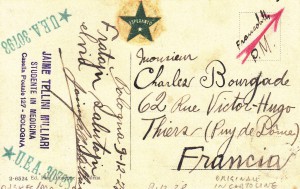 ESPERANTO
★ U.E.A. 30798
JAIME TELLINI MOLLIARI
STUDENTE IN MEDICINA
Casella Postale 127 - BOLOGNA
★ U.E.A. 307
Bologna 9-12-2
Fratajn Salutojn
Francobollo
P.M.
Monsieur
Charles Bourgade
62 Rue Victor-Hugo
Thiers (Puy de Dôme)
Francia
ORIGINALI
IN CARTOLINE